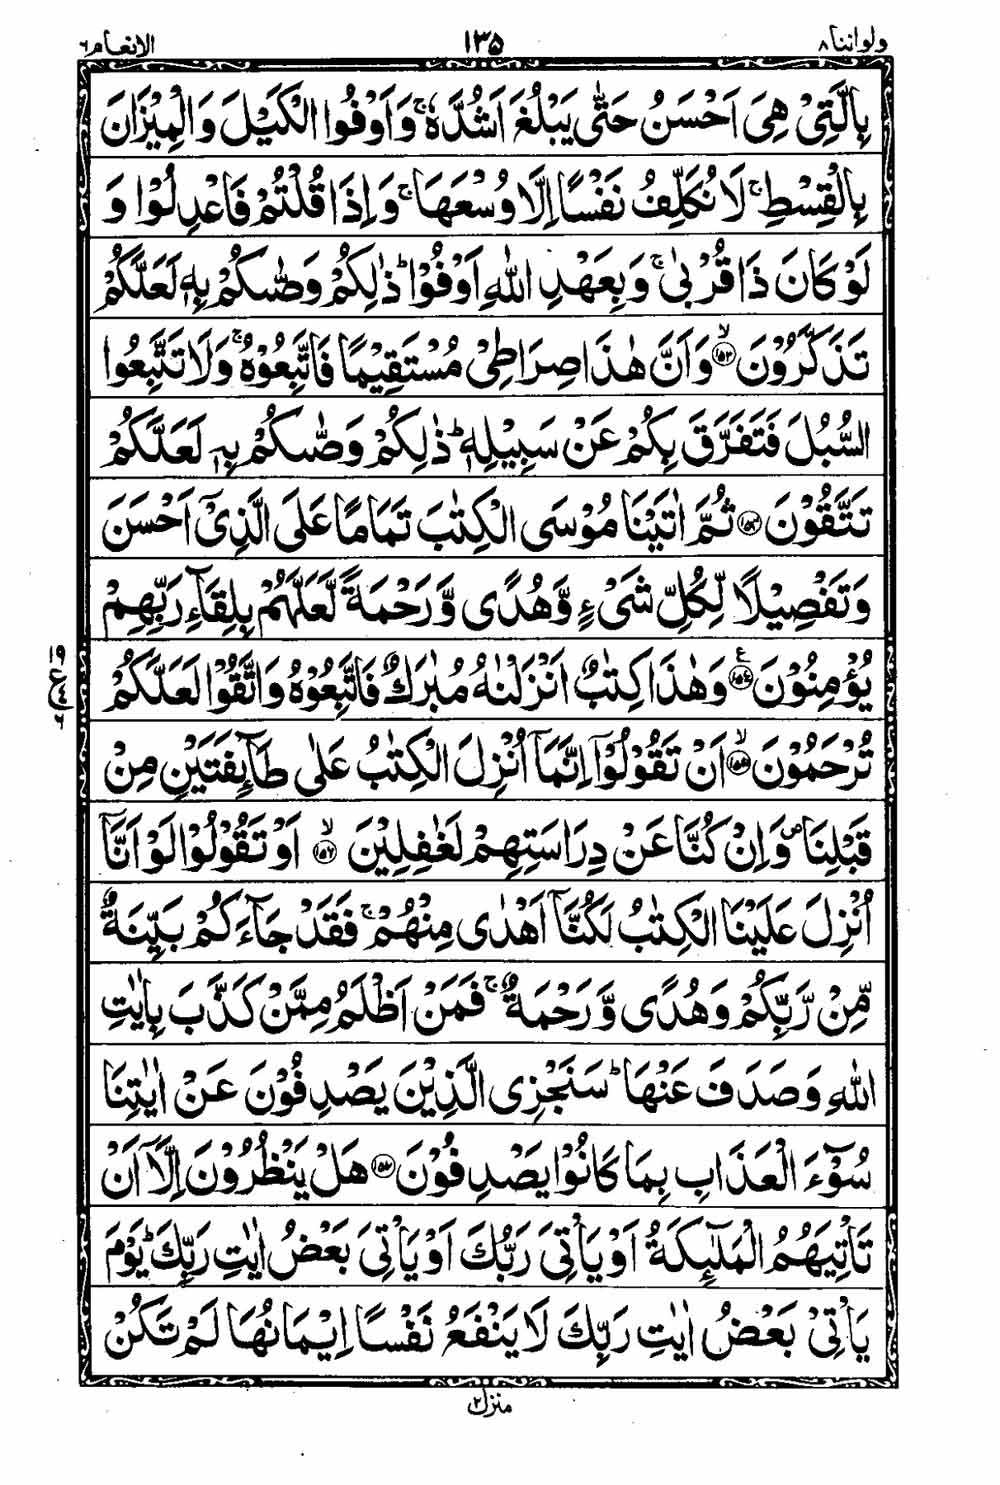 ولواننا ٨ ١٣٥ الانعام ٦
بِالَّتِیْ هِیَ اَحْسَنُ حَتّٰی یَبْلُغَ اَشُدَّهٗ ۚ وَاَوْفُوا الْكَیْلَ وَالْمِیْزَانَ
بِالْقِسْطِ ۚ لَا نُكَلِّفُ نَفْسًا اِلَّا وُسْعَهَا ۚ وَاِذَا قُلْتُمْ فَاعْدِلُوْا وَ
لَوْ كَانَ ذَا قُرْبٰی ۚ وَبِعَهْدِ اللّٰهِ اَوْفُوْا ؕ ذٰلِكُمْ وَصّٰىكُمْ بِهٖ لَعَلَّكُمْ
تَذَكَّرُوْنَ ۙ﴿۱۵۲﴾ وَاَنَّ هٰذَا صِرَاطِیْ مُسْتَقِیْمًا فَاتَّبِعُوْهُ ۚ وَلَا تَتَّبِعُوا
السُّبُلَ فَتَفَرَّقَ بِكُمْ عَنْ سَبِیْلِهٖ ؕ ذٰلِكُمْ وَصّٰىكُمْ بِهٖ لَعَلَّكُمْ
تَتَّقُوْنَ ﴿۱۵۳﴾ ثُمَّ اٰتَیْنَا مُوْسَی الْكِتٰبَ تَمَامًا عَلَی الَّذِیْۤ اَحْسَنَ
وَتَفْصِیْلًا لِّكُلِّ شَیْءٍ وَّهُدًی وَّرَحْمَةً لَّعَلَّهُمْ بِلِقَآءِ رَبِّهِمْ
یُؤْمِنُوْنَ ﴿۱۵۴﴾ ع وَهٰذَا كِتٰبٌ اَنْزَلْنٰهُ مُبٰرَكٌ فَاتَّبِعُوْهُ وَاتَّقُوْا لَعَلَّكُمْ
تُرْحَمُوْنَ ۙ﴿۱۵۵﴾ اَنْ تَقُوْلُوْۤا اِنَّمَاۤ اُنْزِلَ الْكِتٰبُ عَلٰی طَآىِٕفَتَیْنِ مِنْ
قَبْلِنَا ۪ وَاِنْ كُنَّا عَنْ دِرَاسَتِهِمْ لَغٰفِلِیْنَ ۙ﴿۱۵۶﴾ اَوْ تَقُوْلُوْا لَوْ اَنَّاۤ
اُنْزِلَ عَلَیْنَا الْكِتٰبُ لَكُنَّاۤ اَهْدٰی مِنْهُمْ ۚ فَقَدْ جَآءَكُمْ بَیِّنَةٌ
مِّنْ رَّبِّكُمْ وَهُدًی وَّرَحْمَةٌ ۚ فَمَنْ اَظْلَمُ مِمَّنْ كَذَّبَ بِاٰیٰتِ
اللّٰهِ وَصَدَفَ عَنْهَا ؕ سَنَجْزِی الَّذِیْنَ یَصْدِفُوْنَ عَنْ اٰیٰتِنَا
سُوْٓءَ الْعَذَابِ بِمَا كَانُوْا یَصْدِفُوْنَ ﴿۱۵۷﴾ هَلْ یَنْظُرُوْنَ اِلَّاۤ اَنْ
تَاْتِیَهُمُ الْمَلٰٓىِٕكَةُ اَوْ یَاْتِیَ رَبُّكَ اَوْ یَاْتِیَ بَعْضُ اٰیٰتِ رَبِّكَ ؕ یَوْمَ
یَاْتِیْ بَعْضُ اٰیٰتِ رَبِّكَ لَا یَنْفَعُ نَفْسًا اِیْمَانُهَا لَمْ تَكُنْ
منزل ٢